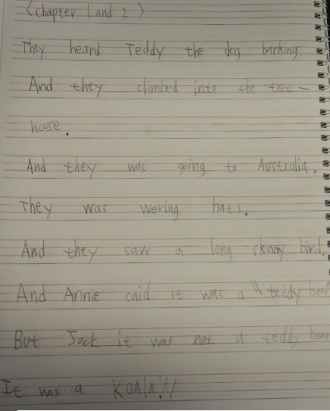 <chapter 1 and 2>
They heard Teddy the dog barking.
And they climbed into the tree-
house.
And they was going to Australia.
They was wering hats.
And they saw a long skany bird.
And Annie caid it was a "teddy bear
But Jack it was not a teddy bear
It was a Koala!!